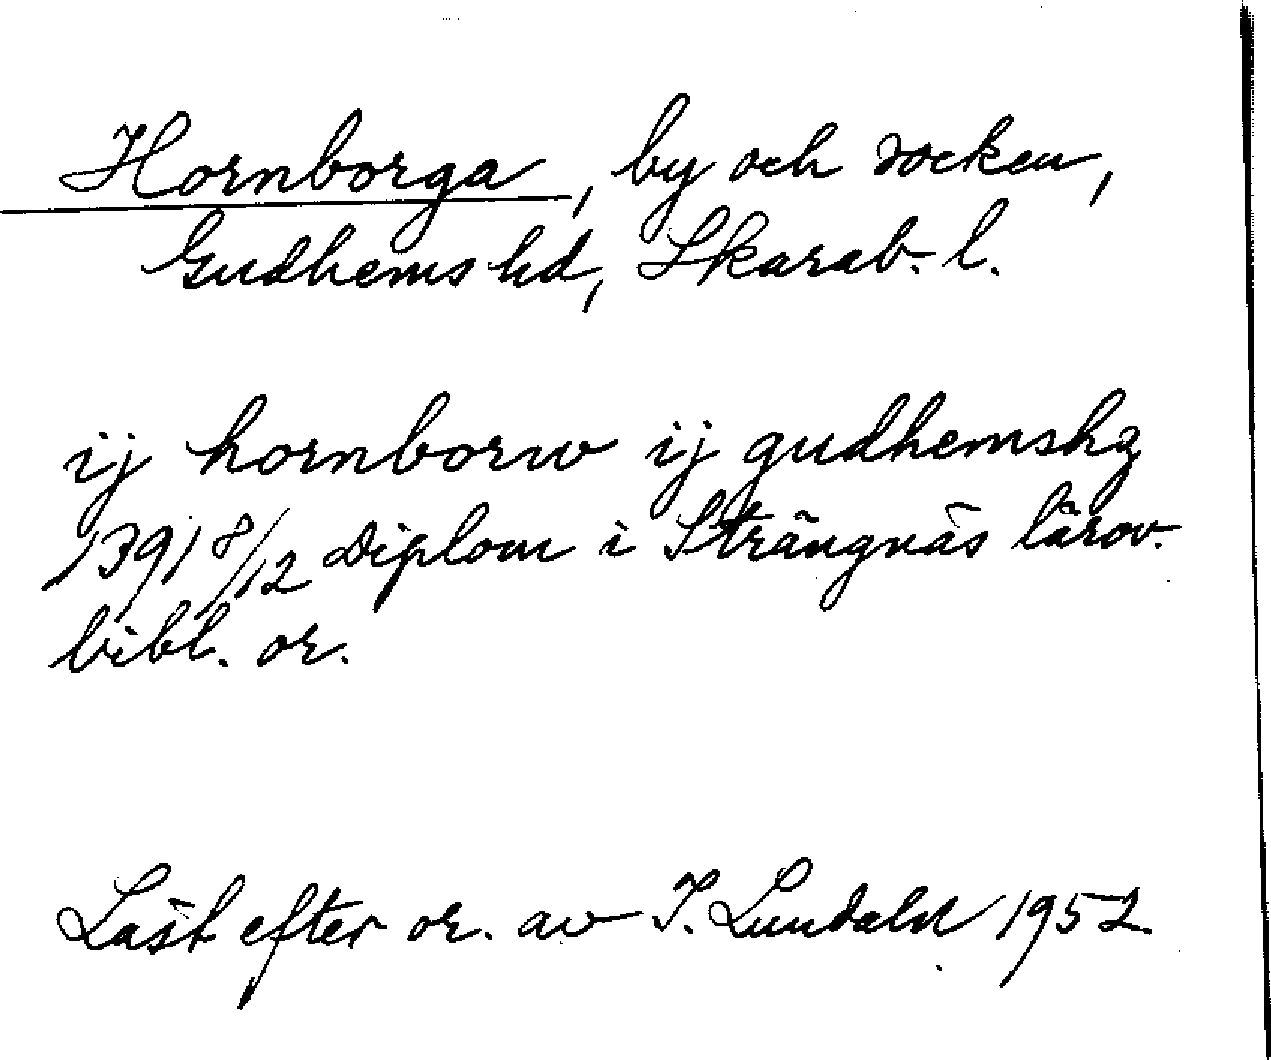 Hornborga, by och socken,
Gudhems hd, Skarab. l.
ij hornborw ij gudhemshz
1391 8/12 Diplom i Strängnäs lärov.
bibl. or.
Läst efter or. av I. Lundahl 1952.